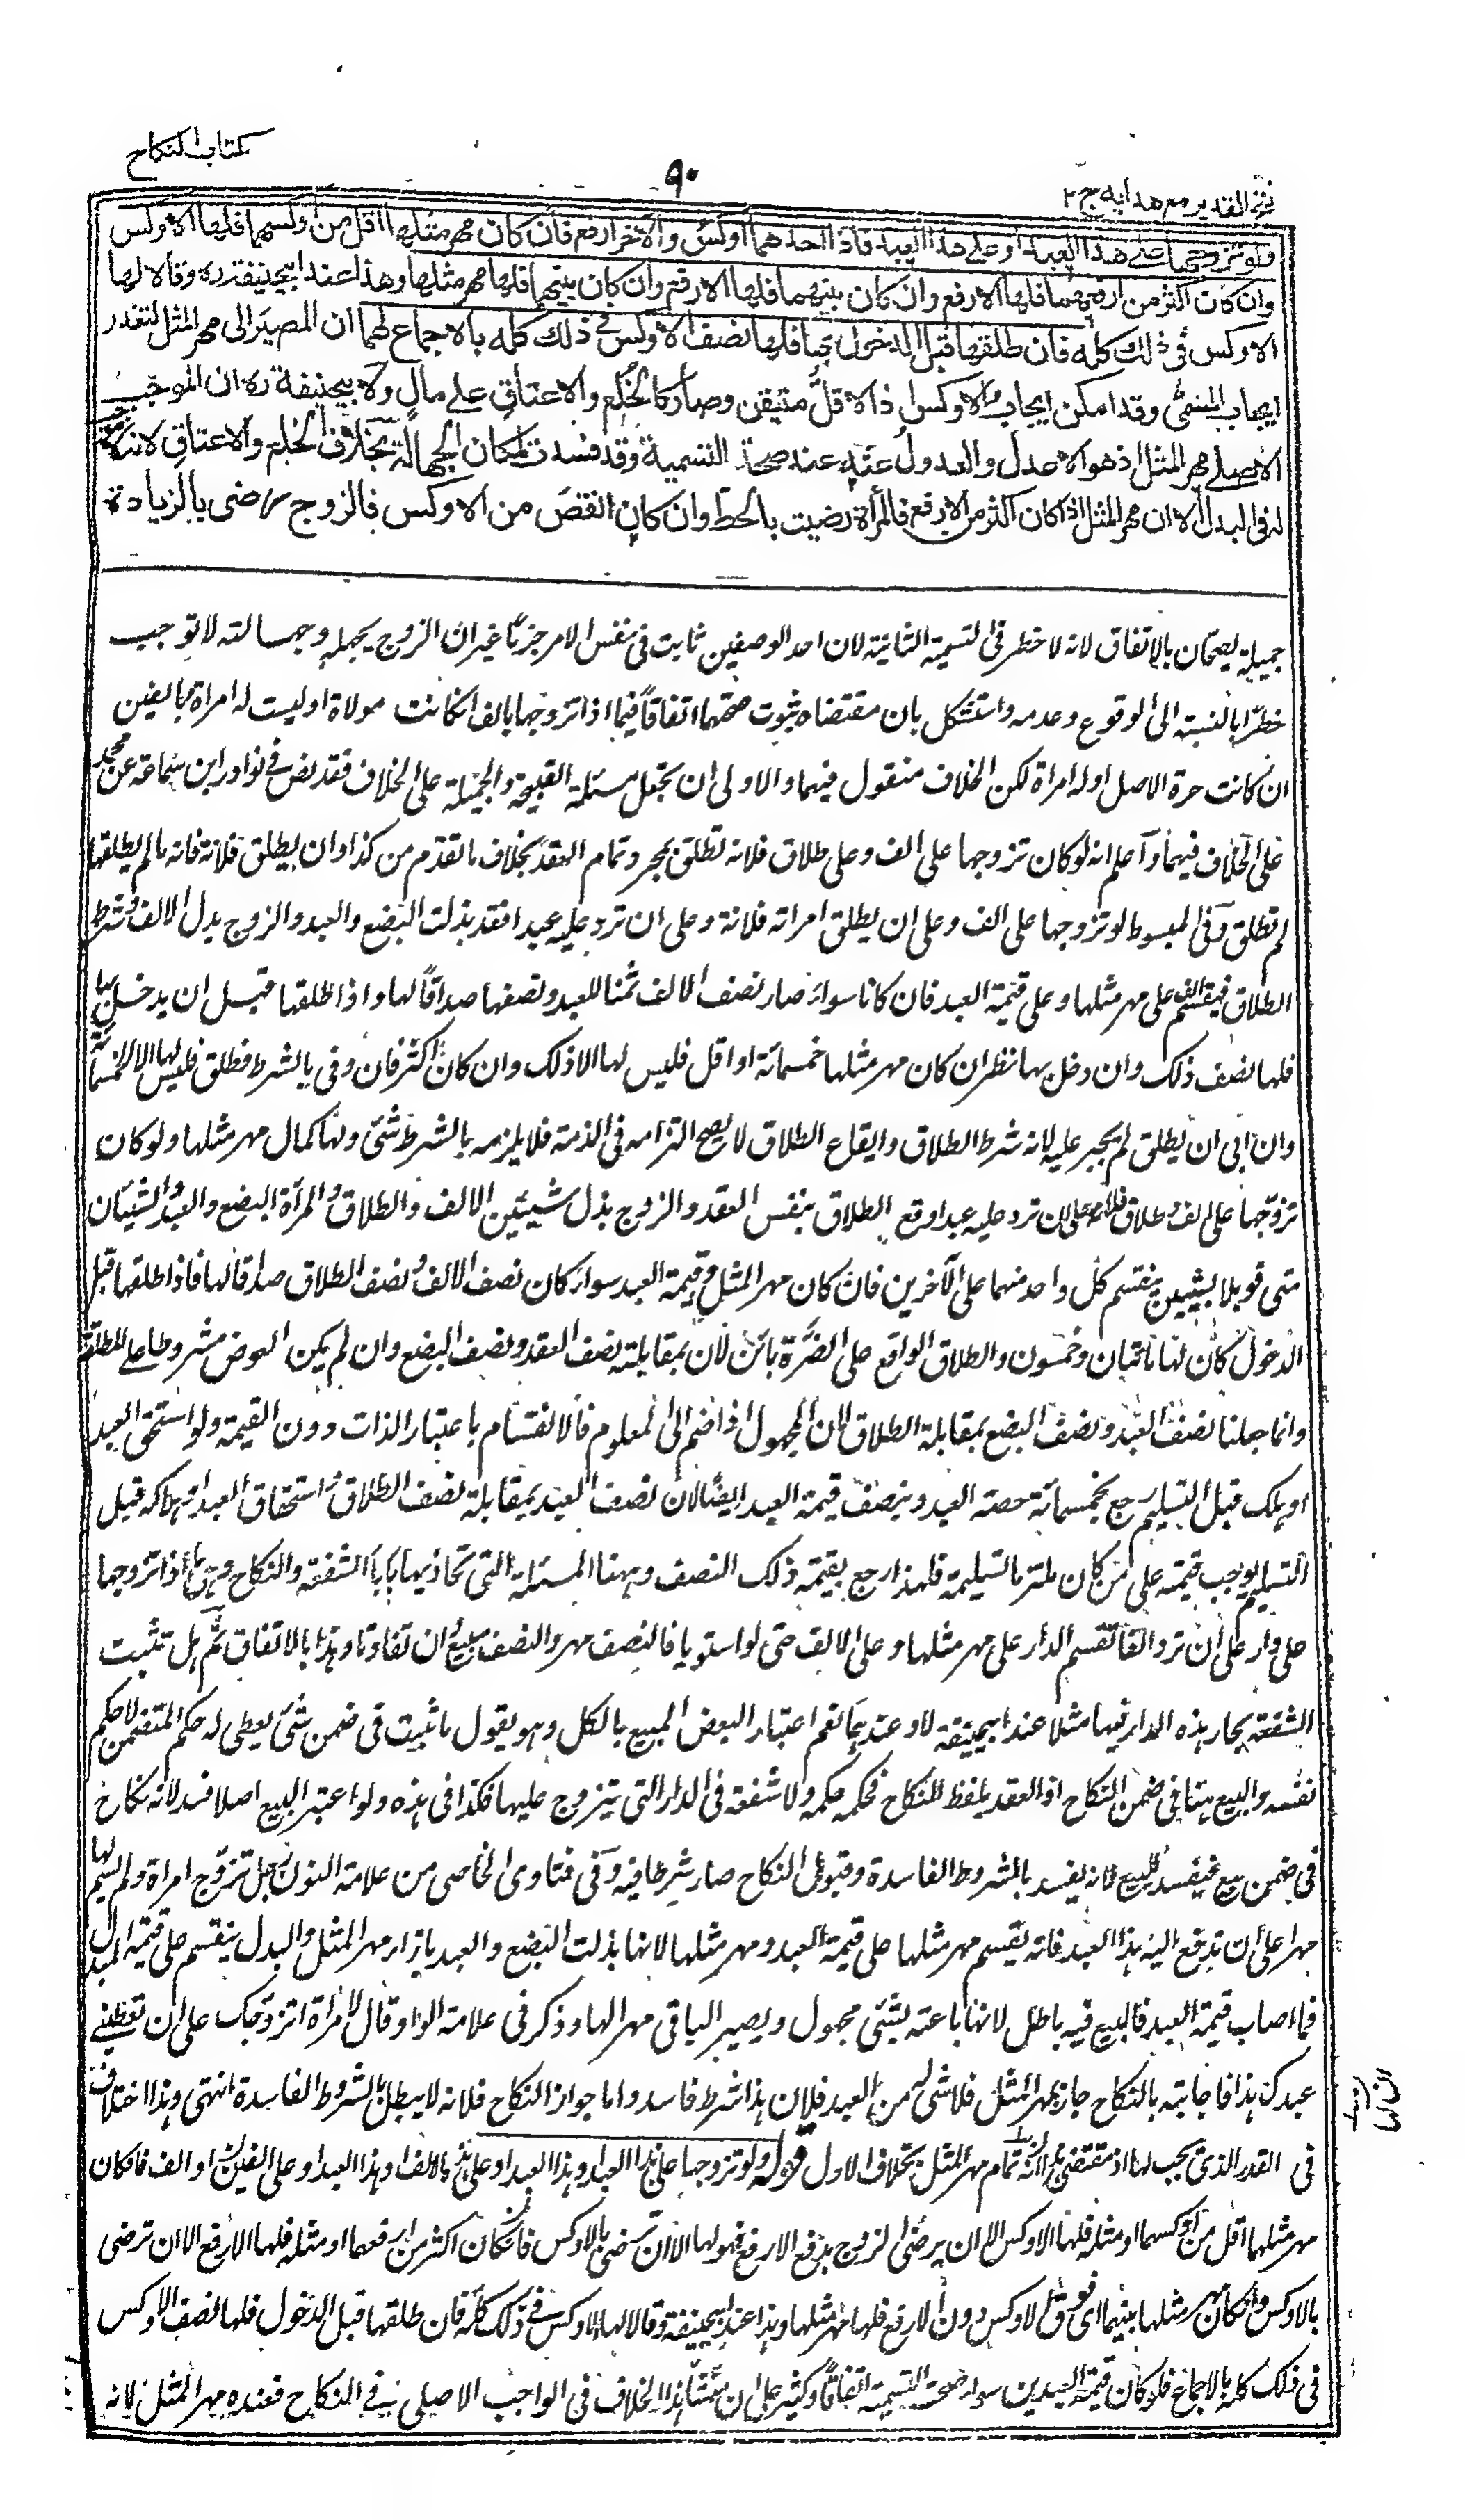 كتاب النكاح
٩٠
فتح القدير مع هدايه ج ٢
ولو تزوجها على هذا العبد او على هذا العبد فاذا احدهما اوكس والآخر ارفع فان كان مهر مثلها اقل من اوكسهما فلها الاوكس
وان كان اكثر من ارفعهما فلها الارفع وان كان بينهما فلها الارفع وان كان بينهما فلها مهر مثلها وهذا عند ابيحنيفة ره وقالا لها
الاوكس في ذلك كله فان طلقها قبل الدخول بها فلها نصف الاوكس في ذلك كله بالاجماع لهما ان المصير الى مهر المثل لتعذر
ايجاب المسمى وقد امكن ايجاب الاوكس اذ الاقل متيقن وصار كالخلع والاعتاق على مال ولابيحنيفة ره ان الموجب
الاصلى مهر المثل اذ هو الاعدل والعدول عنه عند صحة التسمية وقد فسدت لمكان الجهالة بخلاف الخلع والاعتاق لانه لا موجب
له في البدل الا ان مهر المثل اذا كان اكثر من الارفع فالمرأة رضيت بالحط وان كان انقص من الاوكس فالزوج رضى بالزيادة
جميلة يصحان بالاتفاق لانه لا خطر في التسمية الثانية لان احد الوصفين ثابت في نفس الامر جزمًا غير ان الزوج يجهله وجهالته لا توجب
خطرًا بالنسبة الى الوقوع وعدمه واستشكل بان مقتضاه ثبوت صحتهما اتفاقًا فيما اذا تزوجها بالف ان كانت مولاة او ليست له امراة وبالفين
ان كانت حرة الاصل او له امراة لكن الخلاف منقول فيهما والاولى ان تجعل مسئلة القبيحة والجميلة على الخلاف فقد نص في نوادر ابن سماعة عن محمد
على الخلاف فيهما وآعلم انه لو كان تزوجها على الف وعلى طلاق فلانة تطلق بمجرد تمام العقد بخلاف ما تقدم من كذا وان يطلق فلانة فانه ما لم يطلقها
لم تطلق وفى المبسوط لو تزوجها على الف وعلى ان يطلق امراته فلانة وعلى ان ترد عليه عبدا فقد بذلت البضع والعبد والزوج بدل الالف وشرط
الطلاق فيقسم الالف على مهر مثلها وعلى قيمة العبد فان كانا سواء صار نصف الالف ثمنا للعبد ونصفها صداقًا لها واذا طلقها قبل ان يدخل بها
فلها نصف ذلك وان دخل بها نظر ان كان مهر مثلها خمسمائة او اقل فليس لها الا ذلك وان كان اكثر فان وفى بالشرط فطلق فليس لها الا الخمسمائة
وان ابى ان يطلق لم يجبر عليه لانه شرط الطلاق وايقاع الطلاق لا يصح التزامه في الذمة فلا يلزمه بالشرط شئ ولها كمال مهر مثلها ولو كان
تزوجها على الف وطلاق فلانة على ان ترد عليه عبدا وقع الطلاق بنفس العقد والزوج بذل شيئين الالف والطلاق والمرأة البضع والعبد والشيئان
متى قوبلا بشيئين ينقسم كل واحد منهما على الآخرين فان كان مهر المثل وقيمة العبد سواء كان نصف الالف ونصف الطلاق صداقا لها فاذا طلقها قبل
الدخول كان لها مائتان وخمسون والطلاق الواقع على الضرة بائن لان بمقابلته نصف العقد ونصف البضع وان لم يكن العوض مشروطا على المطلقة
وانما جعلنا نصف العبد ونصف البضع بمقابلة الطلاق لان المجهول اذا ضم الى المعلوم فالانقسام باعتبار الذات دون القيمة ولو استحق العبد
او هلك قبل التسليم رجع بخمسمائة حصة العبد وبنصف قيمة العبد ايضًا لان نصف العبد بمقابلة نصف الطلاق واستحقاق العبد او هلاكه قبل
التسليم يوجب قيمته على من كان ملتزما تسليمه فلهذا رجع بقيمة ذلك النصف وههنا المسئلة التى تحاذيها بابا الشفعة والنكاح وهى ما اذا تزوجها
على دار على ان ترد الفًا تقسم الدار على مهر مثلها وعلى الالف حتى لو استويا فالنصف مهر والنصف مبيع ان تفاوتا وهذا بالاتفاق ثم هل تثبت
الشفعة لجار هذه الدار فيها مثلا عند ابيحنيفة لا وعندهما نعم اعتبار البعض المبيع بالكل وهو يقول ما ثبت في ضمن شئ يعطى له حكم المتضمن لا حكم
نفسه والبيع هنا في ضمن النكاح اذ العقد بلفظ النكاح فحكمه حكمه ولا شفعة في الدار التى يتزوج عليها فكذا في هذه ولو اعتبر البيع اصلا فسد لانه نكاح
في ضمن بيع فيفسد البيع لانه يفسد بالشروط الفاسدة وقبول النكاح صار شرطا فيه وفى فتاوى الخاصى من علامة النون رجل تزوج امراة ولم يسم لها
مهرا على ان تدفع اليه هذا العبد فانه يقسم مهر مثلها على قيمة العبد ومهر مثلها لانها بذلت البضع والعبد بازاء مهر المثل والبدل ينقسم على قيمة المبدل
فما اصاب قيمة العبد فالبيع فيه باطل لانها باعته بشئ مجهول ويصير الباقى مهرا لها وذكر في علامة الواو قال لامرأة اتزوجك على ان تعطينى
عبدك هذا فاجابته بالنكاح جاز بمهر المثل فلا شئ له من العبد فلان هذا شرط فاسد واما جواز النكاح فلانه لا يبطل بالشروط الفاسدة انتهى وهذا اختلاف
في القدر الذى يجب لها اذ مقتضى هذا انه تمام مهر المثل بخلاف الاول قوله ولو تزوجها على هذا العبد او هذا العبد او على هذا بالالف او هذا العبد او على الفين او الف فان كان
مهر مثلها اقل من اوكسهما او مثله فلها الاوكس الا ان يرضى الزوج بدفع الارفع فهو لها الا ان ترضى بالاوكس فان كان اكثر من ارفعهما او مثله فلها الارفع الا ان ترضى
بالاوكس وان كان مهر مثلها بينهما اى فوق الاوكس دون الارفع فلها مهر مثلها وهذا عند ابيحنيفة وقالا لها الاوكس في ذلك كله فان طلقها قبل الدخول فلها نصف الاوكس
في ذلك كله بالاجماع فلو كان قيمة العبدين سواء صحت التسمية اتفاقًا وكثير على ان منشأ هذا الخلاف في الواجب الاصلى في النكاح فعنده مهر المثل لانه